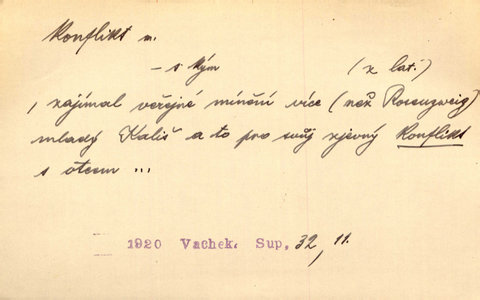 Konflikt m.
– s kým (z lat.)
, zajímal veřejné mínění více (než Rosenzweig)
mladý Kališ a to pro svůj zjevný konflikt
s otcem ...
1920 Vachek. Sup. 32, 11.